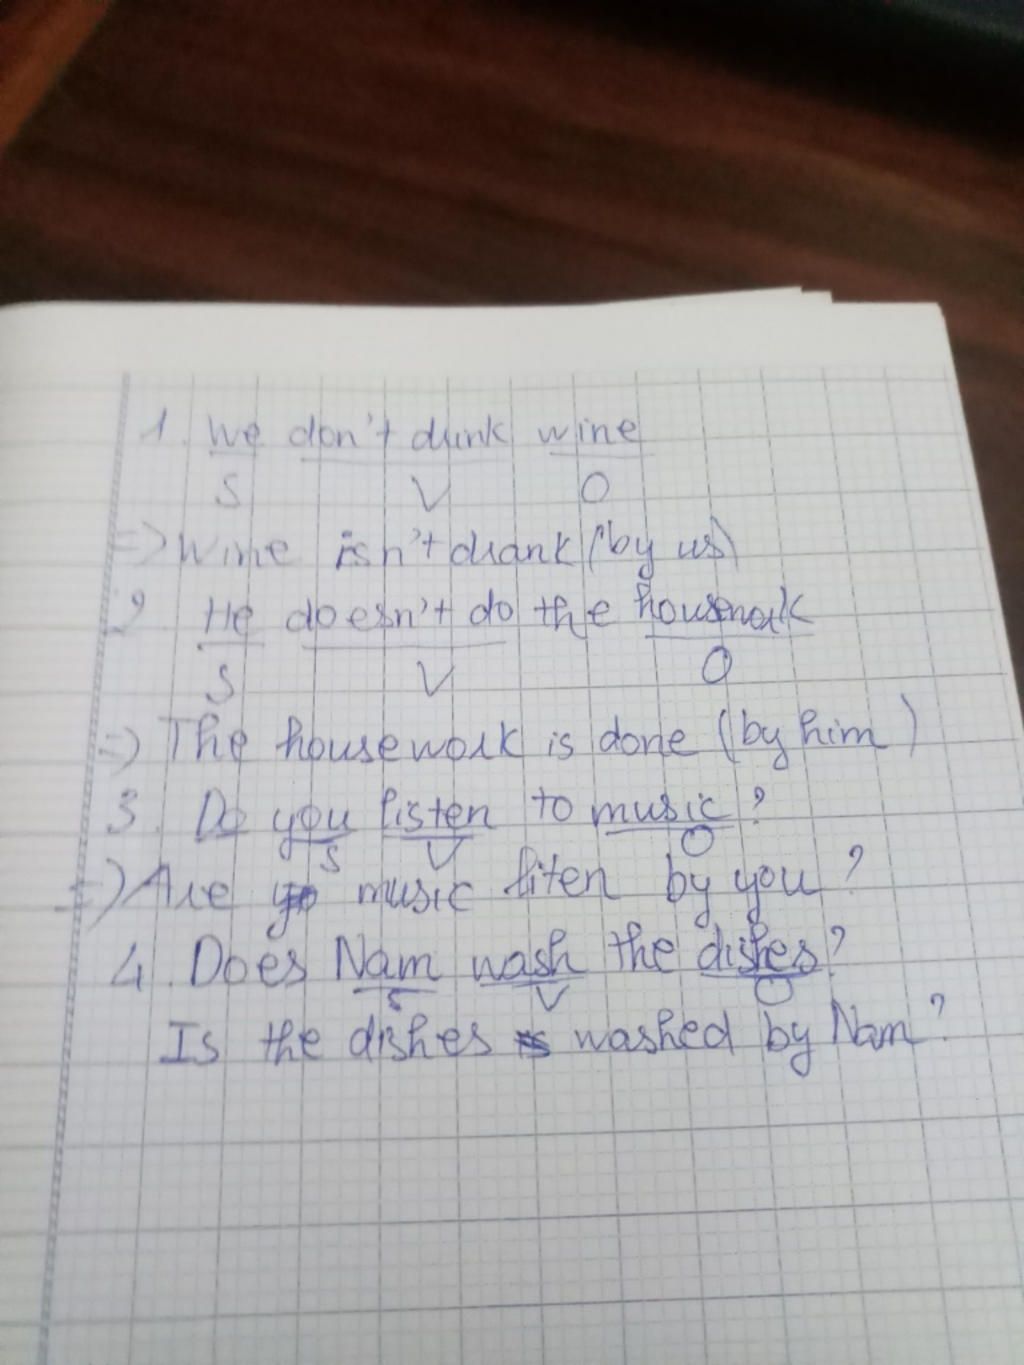 1. We don't drink wine
S V O
=> Wine isn't drank (by us)
2 He doesn't do the housework
S V O
=> The housework is done (by him)
3. Do you listen to music?
S V O
=> Are music liten by you?
4. Does Nam wash the dishes?
S V O
Is the dishes washed by Nam?